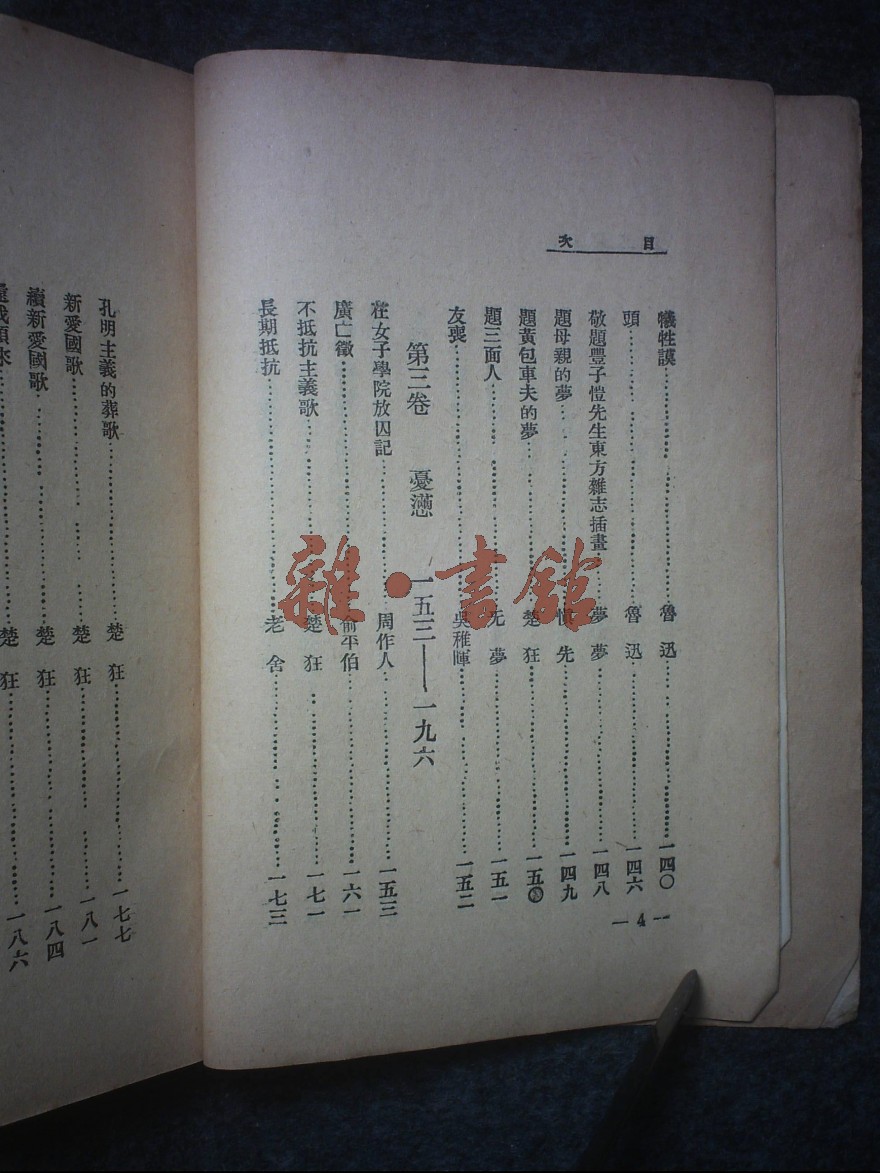 目次
犧牲謨 魯迅 一四〇
頭 魯迅 一四六
敬題豐子愷先生東方雜志插畫 夢夢 一四八
題母親的夢 慎先 一四九
題黃包車夫的夢 楚狂 一五
題三面人 无夢 一五一
友喪 吳稚暉 一五二
第三卷 憂懣 一五三——一九六
在女子學院放囚記 周作人 一五三
廣亡徵 俞平伯 一六一
不抵抗主義歌 楚狂 一七一
長期抵抗 老舍 一七三
—4—
孔明主義的葬歌 楚狂 一七七
新愛國歌 楚狂 一八一
續新愛國歌 楚狂 一八四
還我頭來 楚狂 一八六
雜·書館